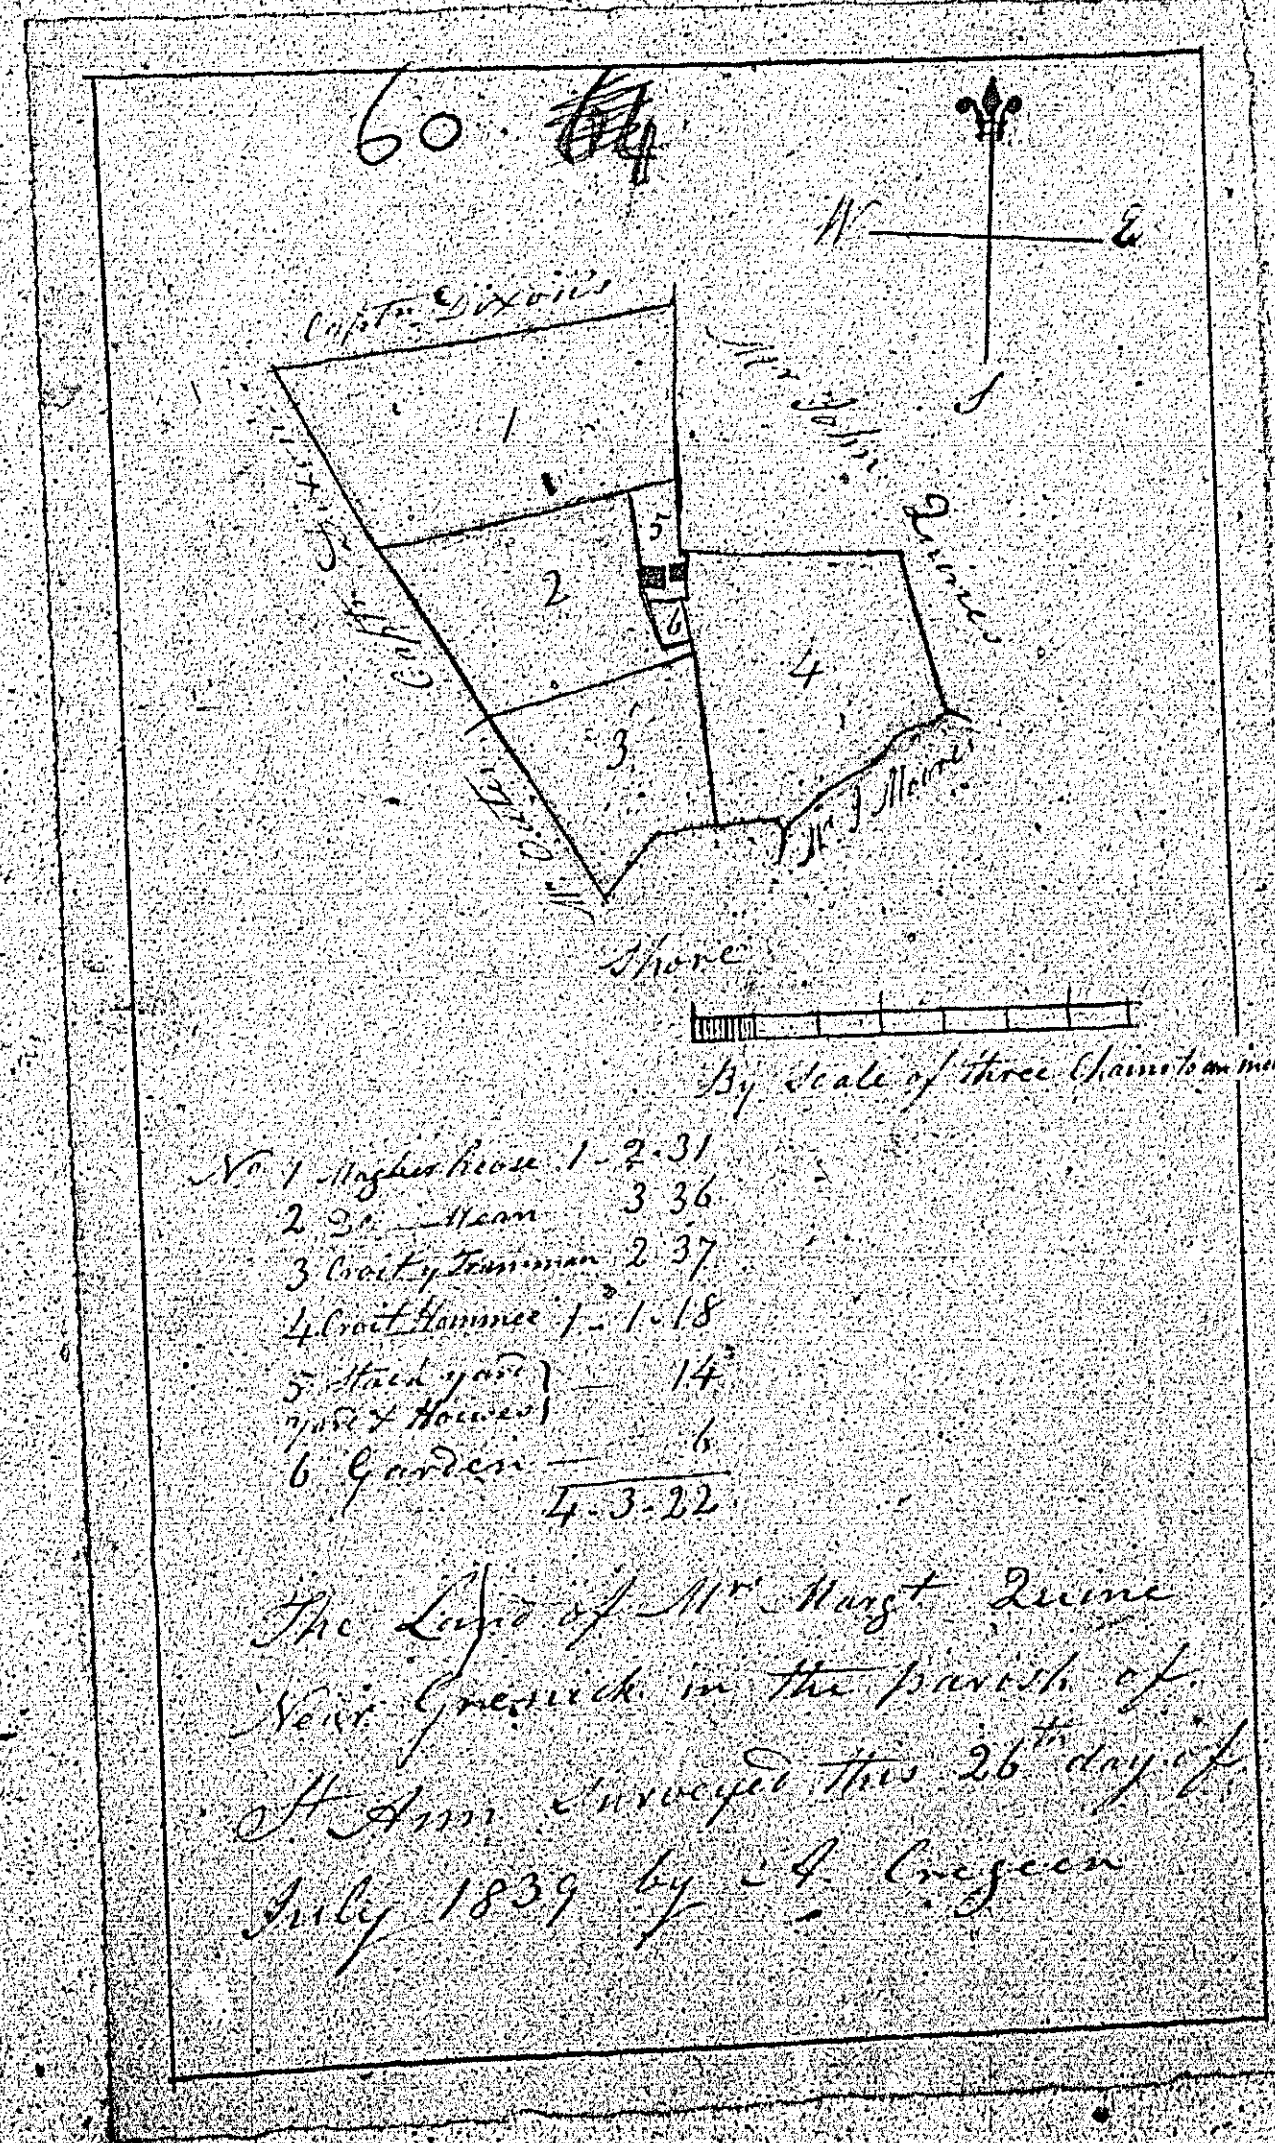 60 64
W E
S
Captn Dixon's
Mr John Quines
Captn
1
2
5
6
4
3
Mr J Moore
Shore
By Scale of three Chains to an
No 1 Magher house 1-2-31
2 Do Mean 3 36
3 Croit y Tramman 2 37
4 Croit Hommee 1-1-18
5 Stack yard } 14
yard & Houses
6 Garden 6
4-3-22
The Land of Mrs Margt Quine
Near Grenick in the parish of
St Ann Surveyed this 26th day of
July 1839 by A. Cregeen